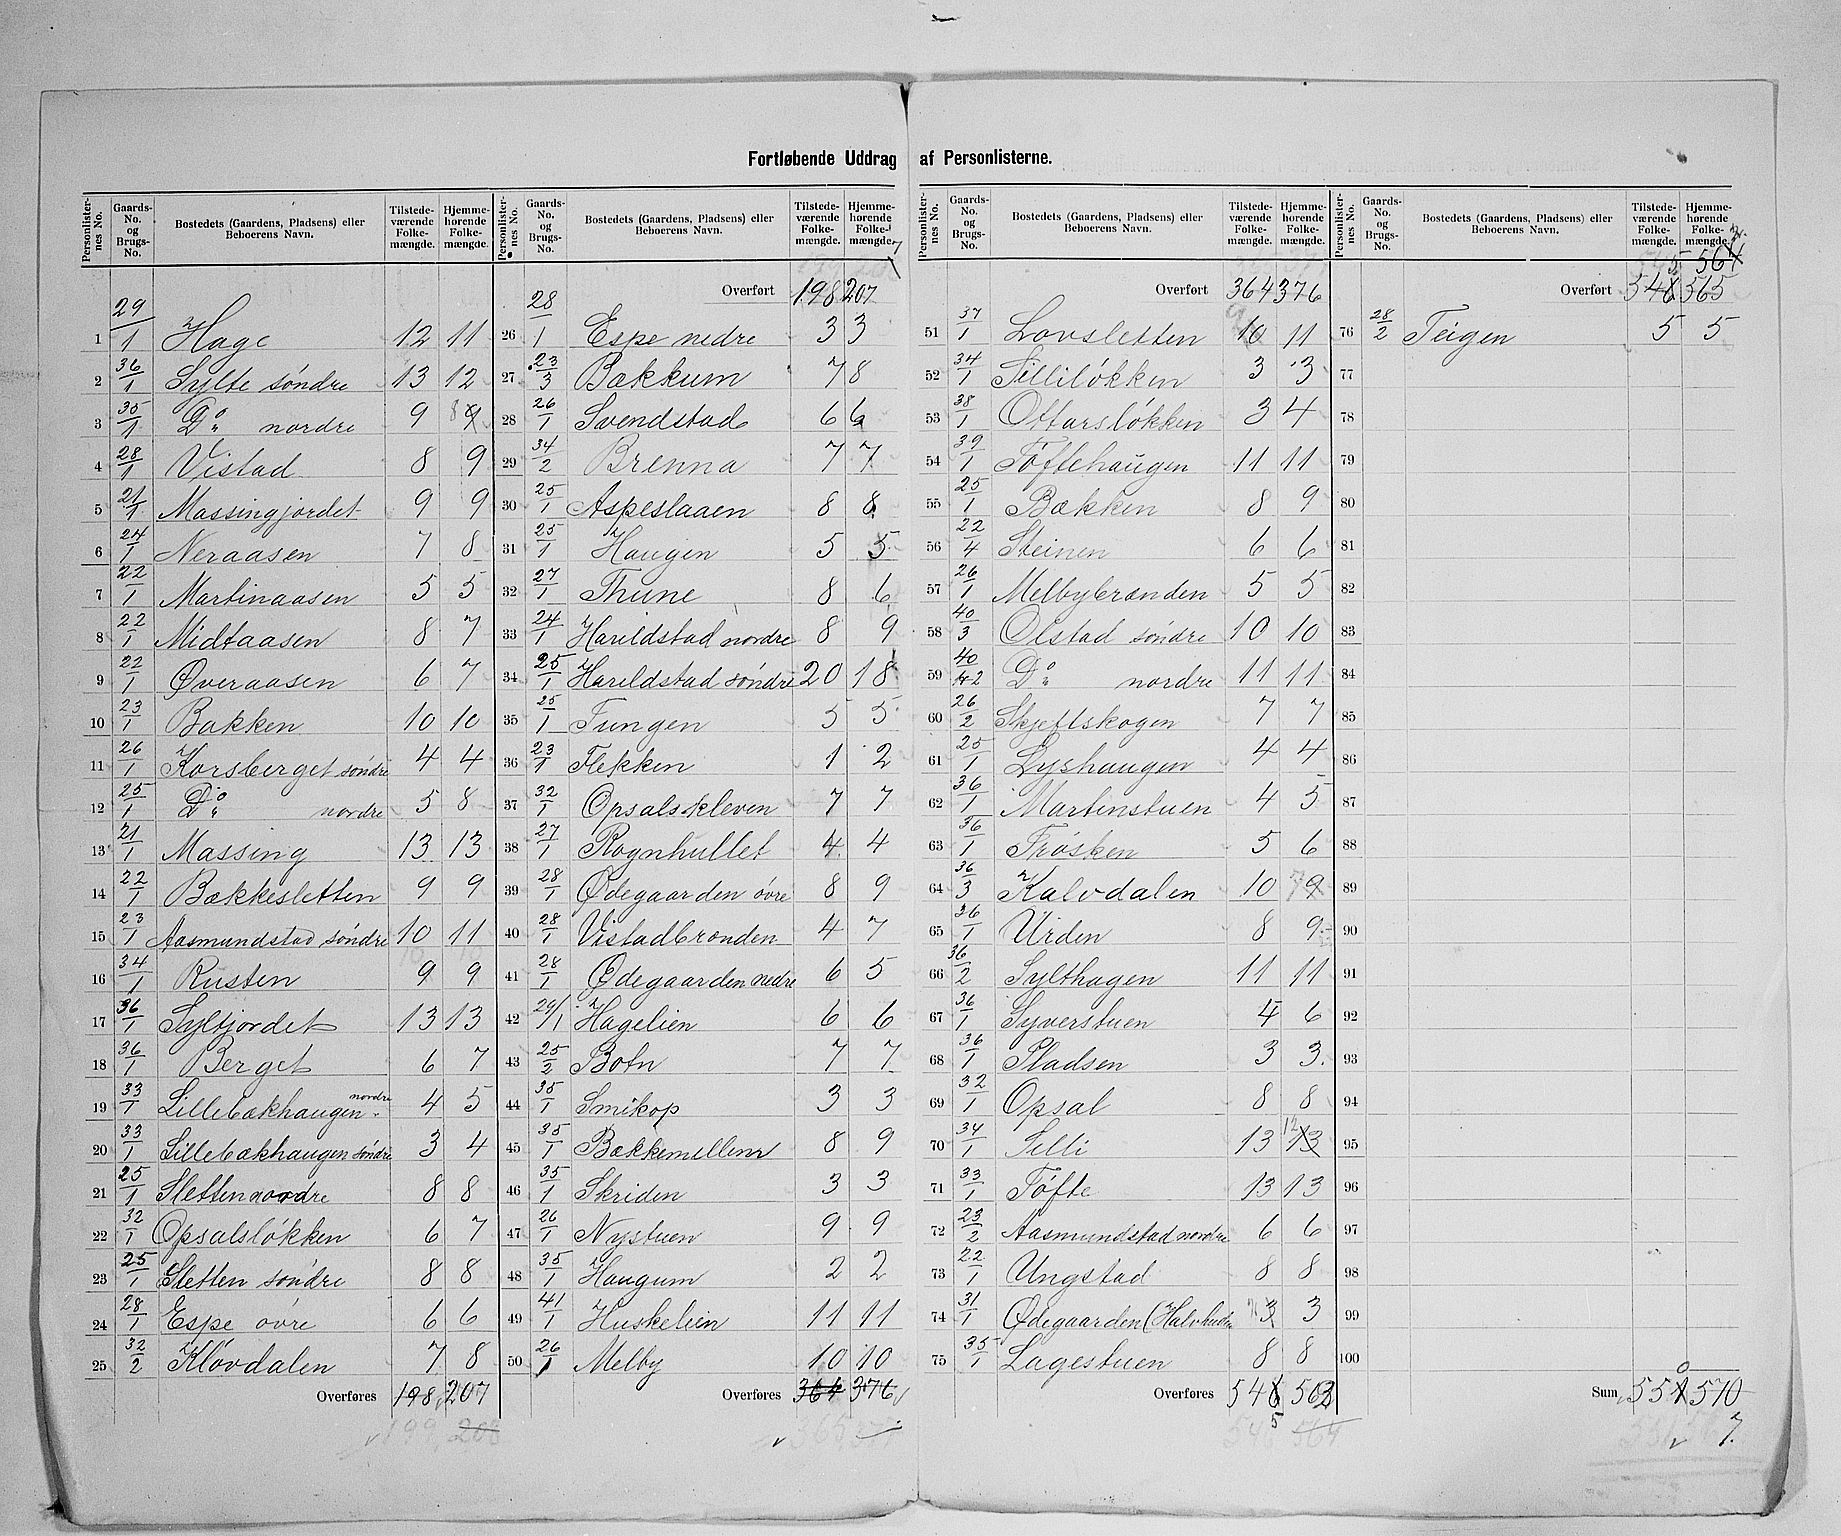 Fortløbende Uddrag af Personlisterne.
Personlister-nes No. Gaards-No. og Brugs-No. Bostedets (Gaardens, Pladsens) eller Beboerens Navn. Tilstede-værende Folke-mængde. Hjemme-hørende Folke-mængde.
1 29/1 Hage 12 11
2 36/1 Sylte søndre 13 12
3 35/1 Do nordre 9 9
4 28/1 Vistad 8 9
5 21/1 Massingjordet 9 9
6 24/1 Neraasen 7 8
7 22/1 Martinaasen 5 5
8 22/1 Midtaasen 8 7
9 22/1 Øveraasen 6 7
10 23/1 Bakken 10 10
11 26/1 Korsberget søndre 4 4
12 25/1 Do nordre 5 8
13 21/1 Massing 13 13
14 22/1 Bækkesletten 9 9
15 23/1 Aasmundstad søndre 10 11
16 34/1 Rusten 9 9
17 36/1 Syltjordet 13 13
18 36/1 Berget 6 7
19 33/1 Lillebækhaugen nordre 4 5
20 33/1 Lillebækhaugen søndre 3 4
21 25/1 Sletten nordre 8 8
22 32/1 Opsalsløkken 6 7
23 25/1 Sletten søndre 8 8
24 28/1 Espe øvre 6 6
25 32/2 Kløvdalen 7 8
Overføres 198 207
199 208
Personlister-nes No. Gaards-No. og Brugs-No. Bostedets (Gaardens, Pladsens) eller Beboerens Navn. Tilstede-værende Folke-mængde. Hjemme-hørende Folke-mængde.
Overført 198 207
26 28/1 Espe nedre 3 3
27 23/3 Bækkum 7 8
28 26/1 Svendstad 6 6
29 34/2 Brenna 7 7
30 25/1 Aspeslaaen 8 8
31 25/1 Haugen 5 5
32 27/1 Thune 8 6
33 24/1 Hareldstad nordre 8 9
34 25/1 Hareldstad søndre 20 18
35 25/1 Tungen 5 5
36 23/1 Flekken 1 2
37 32/1 Opsalskleven 7 7
38 27/1 Rognhullet 4 4
39 28/1 Ødegaarden øvre 8 9
40 28/1 Vistadbrænden 4 7
41 28/1 Ødegaarden nedre 6 5
42 29/1 Hagelien 6 6
43 25/2 Botn 7 7
44 35/1 Smikop 3 3
45 35/1 Bækkemellem 8 9
46 35/1 Skriden 3 3
47 26/1 Nystuen 9 9
48 35/1 Haugum 2 2
49 41/1 Huskelien 11 11
50 26/1 Melby 10 10
Overføres 364 376
365 377
Personlister-nes No. Gaards-No. og Brugs-No. Bostedets (Gaardens, Pladsens) eller Beboerens Navn. Tilstede-værende Folke-mængde. Hjemme-hørende Folke-mængde.
Overført 364 376
51 37/1 Lovsletten 10 11
52 34/1 Silliløkken 3 3
53 38/1 Ottarsløkken 3 4
54 39/1 Tøftehaugen 11 11
55 25/1 Bækken 8 9
56 22/4 Steinen 6 6
57 26/1 Melbybrænden 5 5
58 40/3 Olstad søndre 10 10
59 40/2 Do nordre 11 11
60 26/2 Skjeftskogen 7 7
61 25/1 Lyshaugen 4 4
62 36/1 Martinstuen 4 5
63 36/1 Frøsken 5 6
64 36/3 Kalvdalen 10 9
65 36/1 Urden 8 9
66 36/2 Sylthagen 11 11
67 36/1 Syverstuen 4 6
68 36/1 Pladsen 3 3
69 32/1 Opsal 8 8
70 34/1 Silli 13 12 13
71 33/1 Tøfte 13 13
72 23/2 Aasmundstad nordre 6 6
73 22/1 Ungstad 8 8
74 31/1 Ødegaarden 3 3
75 35/1 Lagestuen 8 8
Overføres 546 563
5
545 564
Personlister-nes No. Gaards-No. og Brugs-No. Bostedets (Gaardens, Pladsens) eller Beboerens Navn. Tilstede-værende Folke-mængde. Hjemme-hørende Folke-mængde.
5 564
Overført 546 565
76 28/2 Teigen 5 5
77
78
79
80
81
82
83
84
85
86
87
88
89
90
91
92
93
94
95
96
97
98
99
100
0
Sum 551 570
7.